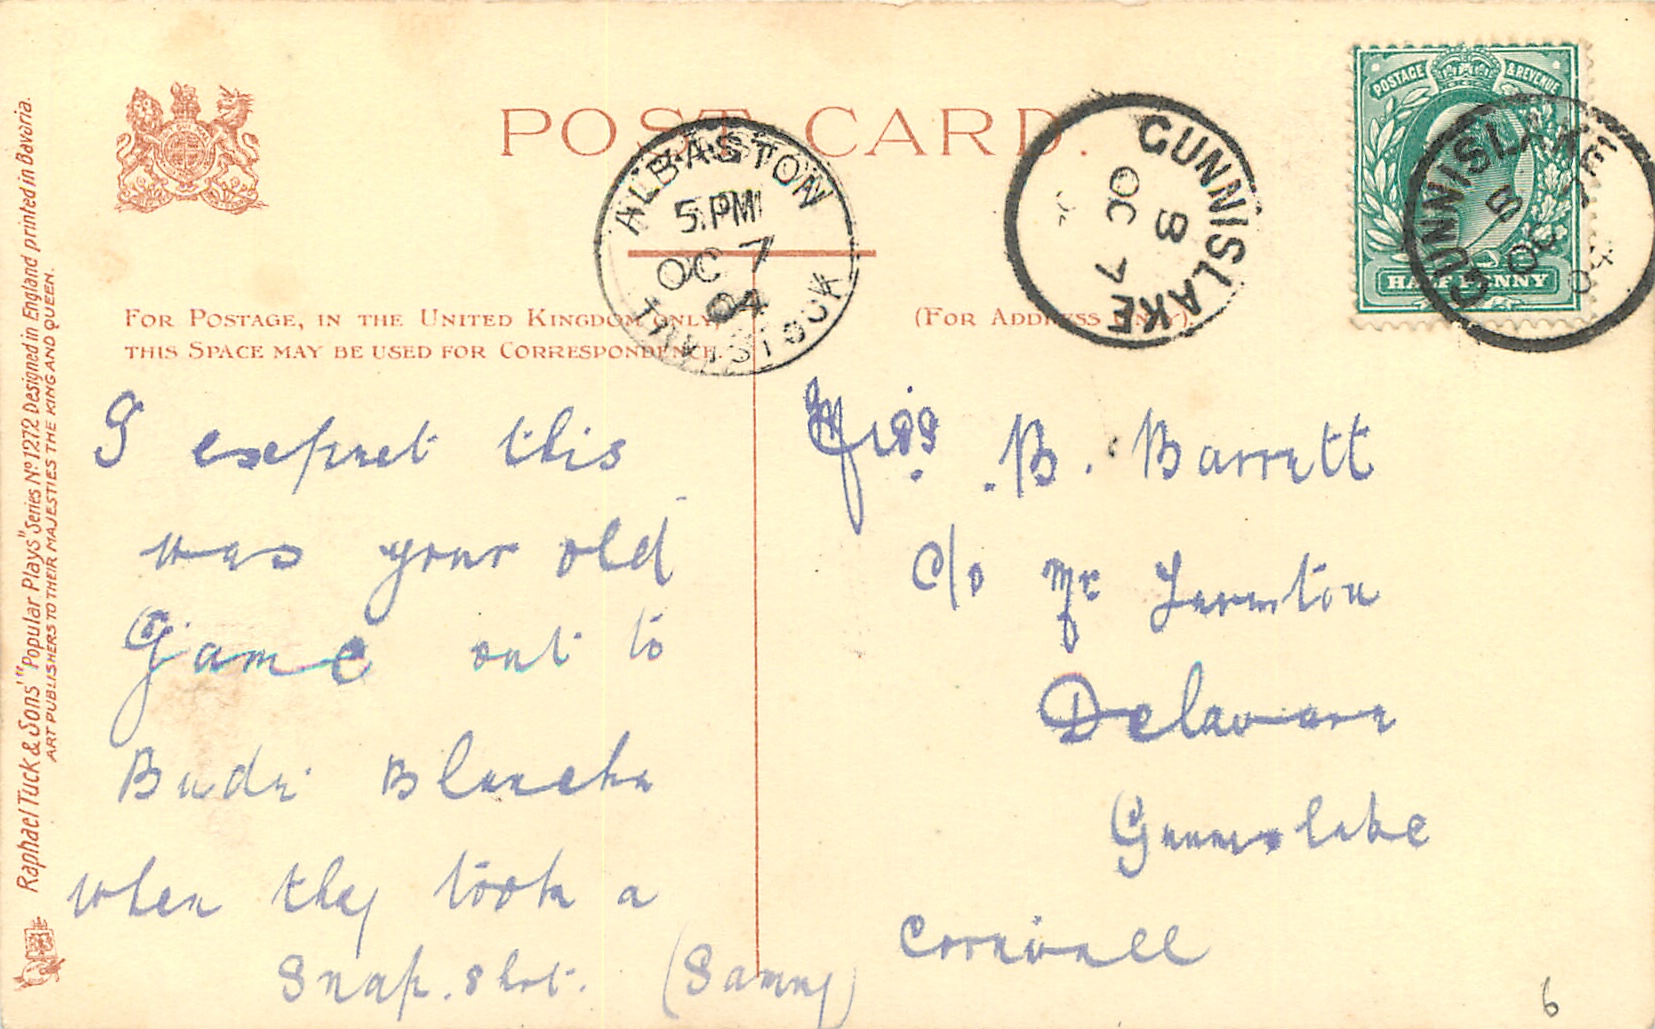 POST CARD.
FOR POSTAGE, IN THE UNITED KINGDOM ONLY,
THIS SPACE MAY BE USED FOR CORRESPONDENCE
(FOR ADDRESS ONLY)
ALBASTON
5.PM
OC 7
04
TAVISTOCK
GUNNISLAKE
B
OC 7
POSTAGE & REVENUE
HALF PENNY
GUNNISLAKE
B
OC 7
04
I expect this
was your old
Game out to
Bude Blanche
when they took a
Snap. shot. (Sammy)
Miss. B. Barrett
c/o Mr
Delaware
Gunnislake
Cornwall
6
Raphael Tuck & Sons' "Popular Plays" Series No 1272 Designed in England printed in Bavaria.
ART PUBLISHERS TO THEIR MAJESTIES THE KING AND QUEEN.